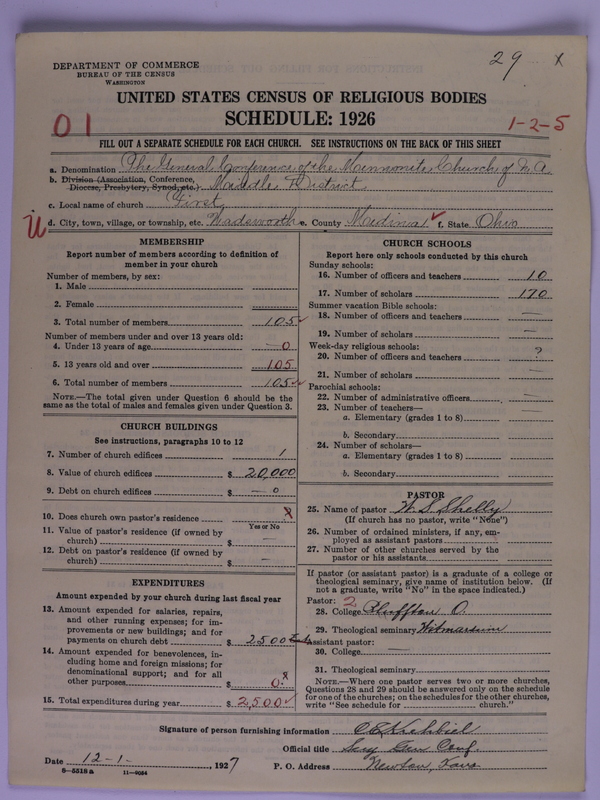 29 x
DEPARTMENT OF COMMERCE
BUREAU OF THE CENSUS
WASHINGTON
UNITED STATES CENSUS OF RELIGIOUS BODIES
SCHEDULE: 1926
01
1-2-5
FILL OUT A SEPARATE SCHEDULE FOR EACH CHURCH. SEE INSTRUCTIONS ON THE BACK OF THIS SHEET
a. Denomination The General Conference of the Mennonite Church of N A
b. Division (Association, Conference, Diocese, Presbytery, Synod, etc.) Middle District
c. Local name of church First
d. City, town, village, or township, etc. Wadsworth e. County Medina ✓ f. State Ohio
MEMBERSHIP
Report number of members according to definition of
member in your church
Number of members, by sex:
1. Male
2. Female
3. Total number of members 105 ✓
Number of members under and over 13 years old:
4. Under 13 years of age 0
5. 13 years old and over 105
6. Total number of members 105 ✓
NOTE.—The total given under Question 6 should be the
same as the total of males and females given under Question 3.
CHURCH BUILDINGS
See instructions, paragraphs 10 to 12
7. Number of church edifices 1
8. Value of church edifices $ 20,000
9. Debt on church edifices $ — 0
10. Does church own pastor's residence x
Yes or No
11. Value of pastor's residence (if owned by
church) $ —
12. Debt on pastor's residence (if owned by
church) $ —
EXPENDITURES
Amount expended by your church during last fiscal year
13. Amount expended for salaries, repairs,
and other running expenses; for im-
provements or new buildings; and for
payments on church debt $ 2500
14. Amount expended for benevolences, in-
cluding home and foreign missions; for
denominational support; and for all
other purposes $ 0 x
15. Total expenditures during year $ 2,500 ✓
CHURCH SCHOOLS
Report here only schools conducted by this church
Sunday schools:
16. Number of officers and teachers 10
17. Number of scholars 170
Summer vacation Bible schools:
18. Number of officers and teachers —
19. Number of scholars —
Week-day religious schools:
20. Number of officers and teachers ?
21. Number of scholars —
Parochial schools:
22. Number of administrative officers —
23. Number of teachers—
a. Elementary (grades 1 to 8) —
b. Secondary
24. Number of scholars—
a. Elementary (grades 1 to 8) —
b. Secondary
PASTOR
25. Name of pastor W. S. Shelly
(If church has no pastor, write "None")
26. Number of ordained ministers, if any, em-
ployed as assistant pastors
27. Number of other churches served by the
pastor or his assistants
If pastor (or assistant pastor) is a graduate of a college or
theological seminary, give name of institution below. (If
not a graduate, write "No" in the space indicated.)
Pastor: 2
28. College Bluffton O.
29. Theological seminary Witmarsum
Assistant pastor:
30. College —
31. Theological seminary
NOTE.—Where one pastor serves two or more churches,
Questions 28 and 29 should be answered only on the schedule
for one of the churches; on the schedules for the other churches,
write "See schedule for church."
Signature of person furnishing information C E Krehbiel
Official title Secy Gen Conf.
Date 12-1-, 1927 P. O. Address Newton, Kans
8—5518a 11—9054